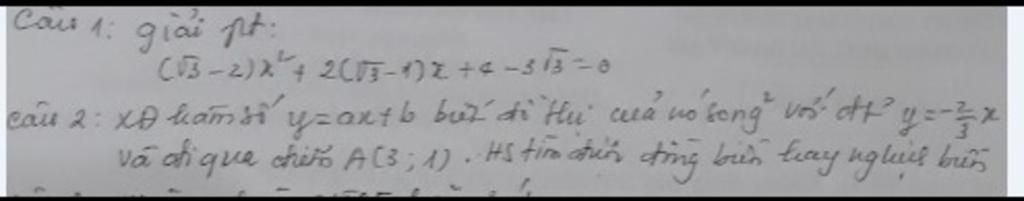 Câu 1: giải pt:
(√3-2)x²+ 2(√3-1)x +4-3√3=0
câu 2: XĐ hàm số y=ax+b biết đồ thị của nó song² với đt² y=-2/3x
và đi qua điểm A(3;1). HS tìm được đồng biến hay nghịch biến